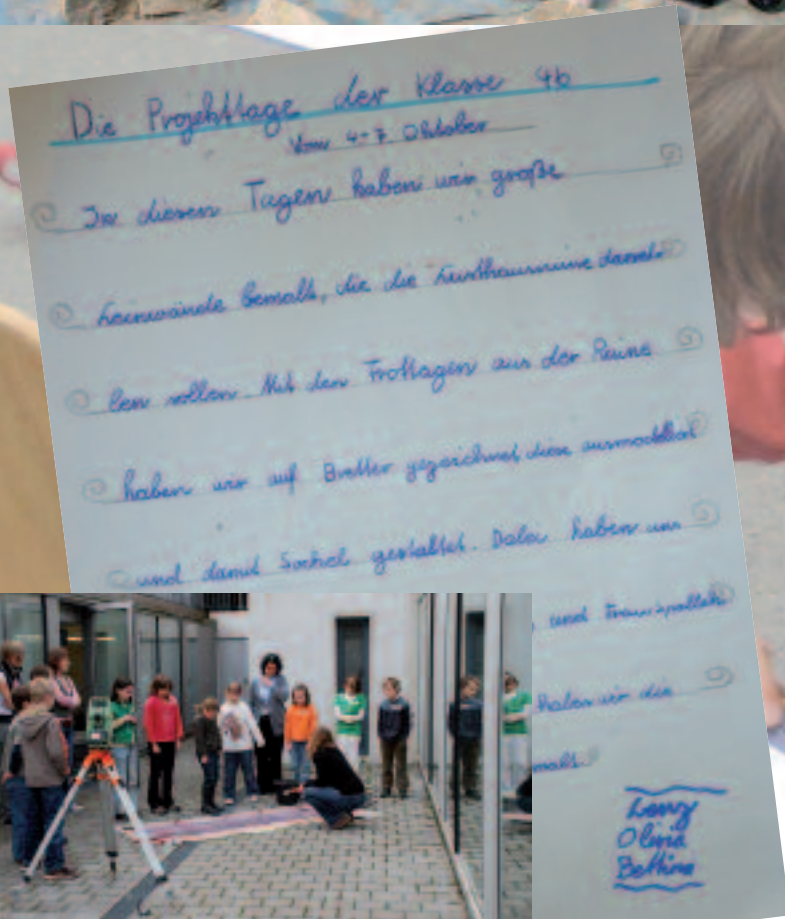 Die Projekttage der Klasse 4b
Vom 4-7. Oktober
In diesen Tagen haben wir große
Leinwände bemalt, die die Lusthausruine darstel-
len sollen. Mit den Frottagen aus der Ruine
haben wir auf Bretter gezeichnet, diese
und damit Sockel gestaltet. Dabei haben uns
und
haben wir die
malt.
Olivia
Bettina